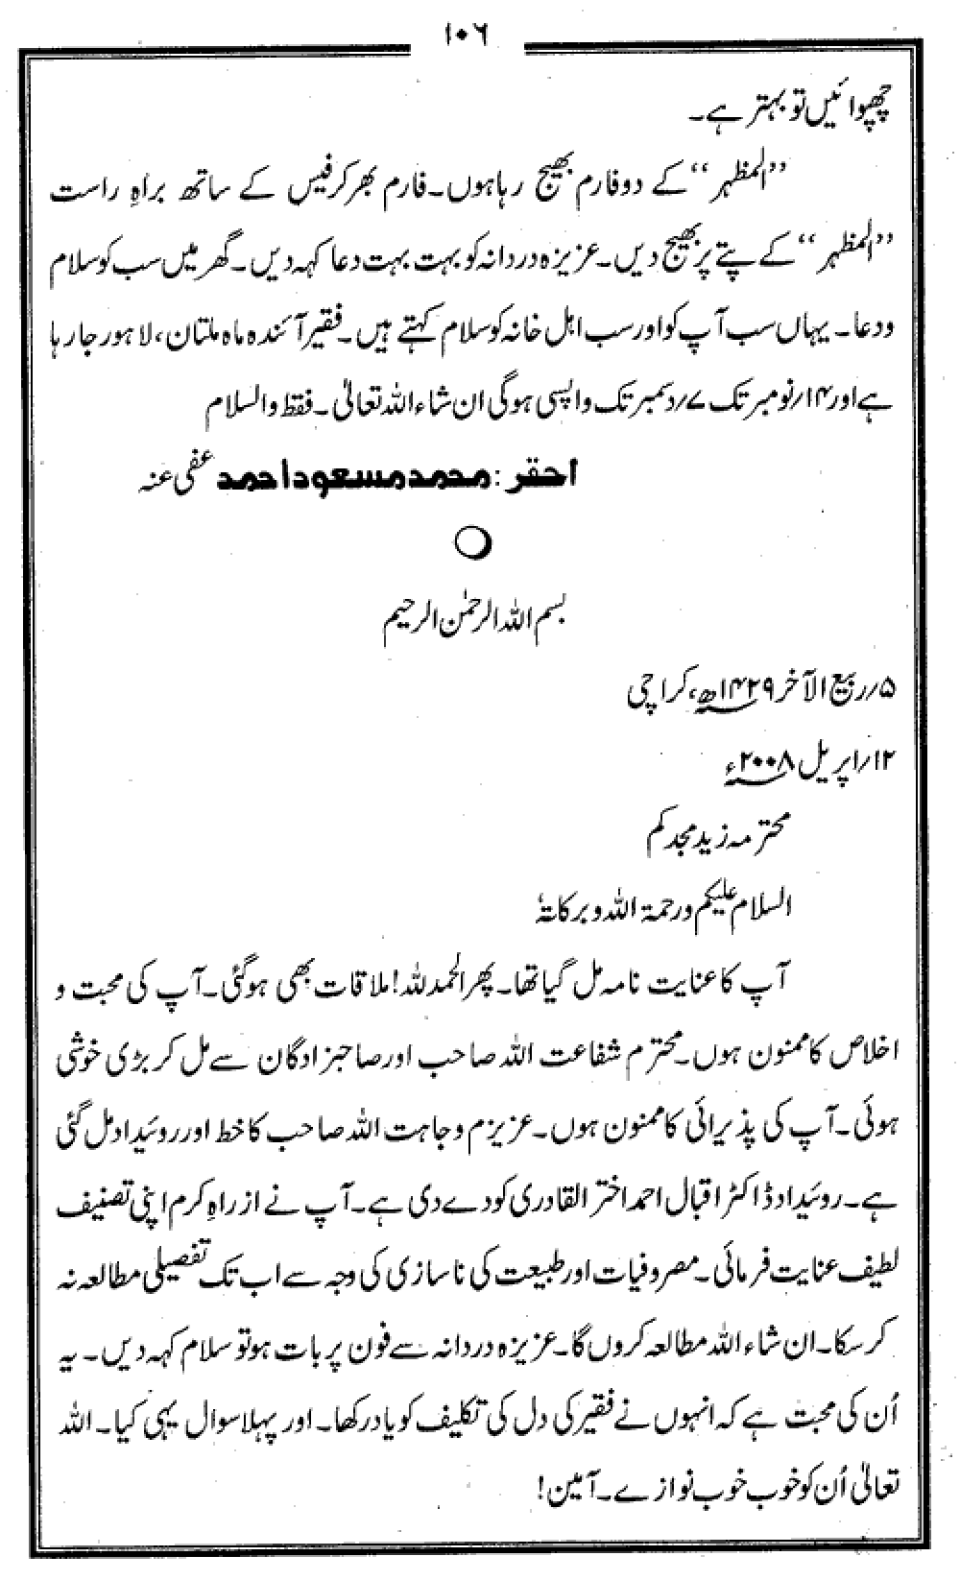 ۱۰۶
چھپوائیں تو بہتر ہے۔
’’المظہر‘‘ کے دو فارم بھیج رہا ہوں۔ فارم بھر کر فیس کے ساتھ براہِ راست
’’المظہر‘‘ کے پتے پر بھیج دیں۔ عزیزہ دردانہ کو بہت بہت دعا کہہ دیں۔ گھر میں سب کو سلام
ودعا۔ یہاں سب آپ کو اور سب اہل خانہ کو سلام کہتے ہیں۔ فقیر آئندہ ماہ ملتان، لاہور جا رہا
ہے اور ۱۴؍نومبر تک ۷؍دسمبر تک واپسی ہوگی ان شاء اللہ تعالیٰ۔ فقط والسلام
احقر: محمد مسعود احمد عفی عنہ
بسم اللہ الرحمٰن الرحیم
۵؍ربیع الآخر ۱۴۲۹ھ، کراچی
۱۲؍اپریل ۲۰۰۸ء
محترمہ زید مجدکم
السلام علیکم ورحمۃ اللہ وبرکاتہٗ
آپ کا عنایت نامہ مل گیا تھا۔ پھر الحمدللہ! ملاقات بھی ہوگئی۔ آپ کی محبت و
اخلاص کا ممنون ہوں۔ محترم شفاعت اللہ صاحب اور صاحبزادگان سے مل کر بڑی خوشی
ہوئی۔ آپ کی پذیرائی کا ممنون ہوں۔ عزیزم وجاہت اللہ صاحب کا خط اور روئیداد مل گئی
ہے۔ روئیداد ڈاکٹر اقبال احمد اختر القادری کو دے دی ہے۔ آپ نے ازراہِ کرم اپنی تصنیف
لطیف عنایت فرمائی۔ مصروفیات اور طبیعت کی ناسازی کی وجہ سے اب تک تفصیلی مطالعہ نہ
کرسکا۔ ان شاء اللہ مطالعہ کروں گا۔ عزیزہ دردانہ سے فون پر بات ہو تو سلام کہہ دیں۔ یہ
اُن کی محبت ہے کہ انہوں نے فقیر کی دل کی تکلیف کو یاد رکھا۔ اور پہلا سوال یہی کیا۔ اللہ
تعالیٰ اُن کو خوب خوب نوازے۔ آمین!